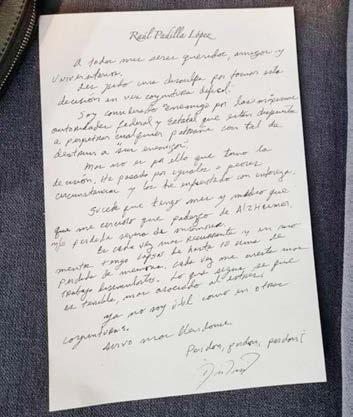 Raúl Padilla López
A todos mis seres queridos, amigos y
universitarios.
Les pido una disculpa por tomar esta
decisión en una coyuntura difícil.
Soy considerado "enemigo" por las máximas
autoridades federal y estatal que están dispuestas
a perpetrar cualquier patraña con tal de
destruir a "sus enemigos".
Mas no es por ello que tomo la
decisión. He pasado por iguales o peores
circunstancias y las he enfrentado con entereza.
Sucede que tengo mes y medio que
me que padezco de Alzheimer,
mis perdida severa de memoria.
Es cada vez más recurrente y en mo
mentos tengo lapsos de hasta 10 mins de
perdida de memoria. Cada vez me cuesta más
trabajo disimularlos. Lo que sigue, se que
es terrible, mas asociado al estrés.
Ya no soy útil como en otras
coyunturas.
Sirvo mas
Perdon, perdon, perdon!